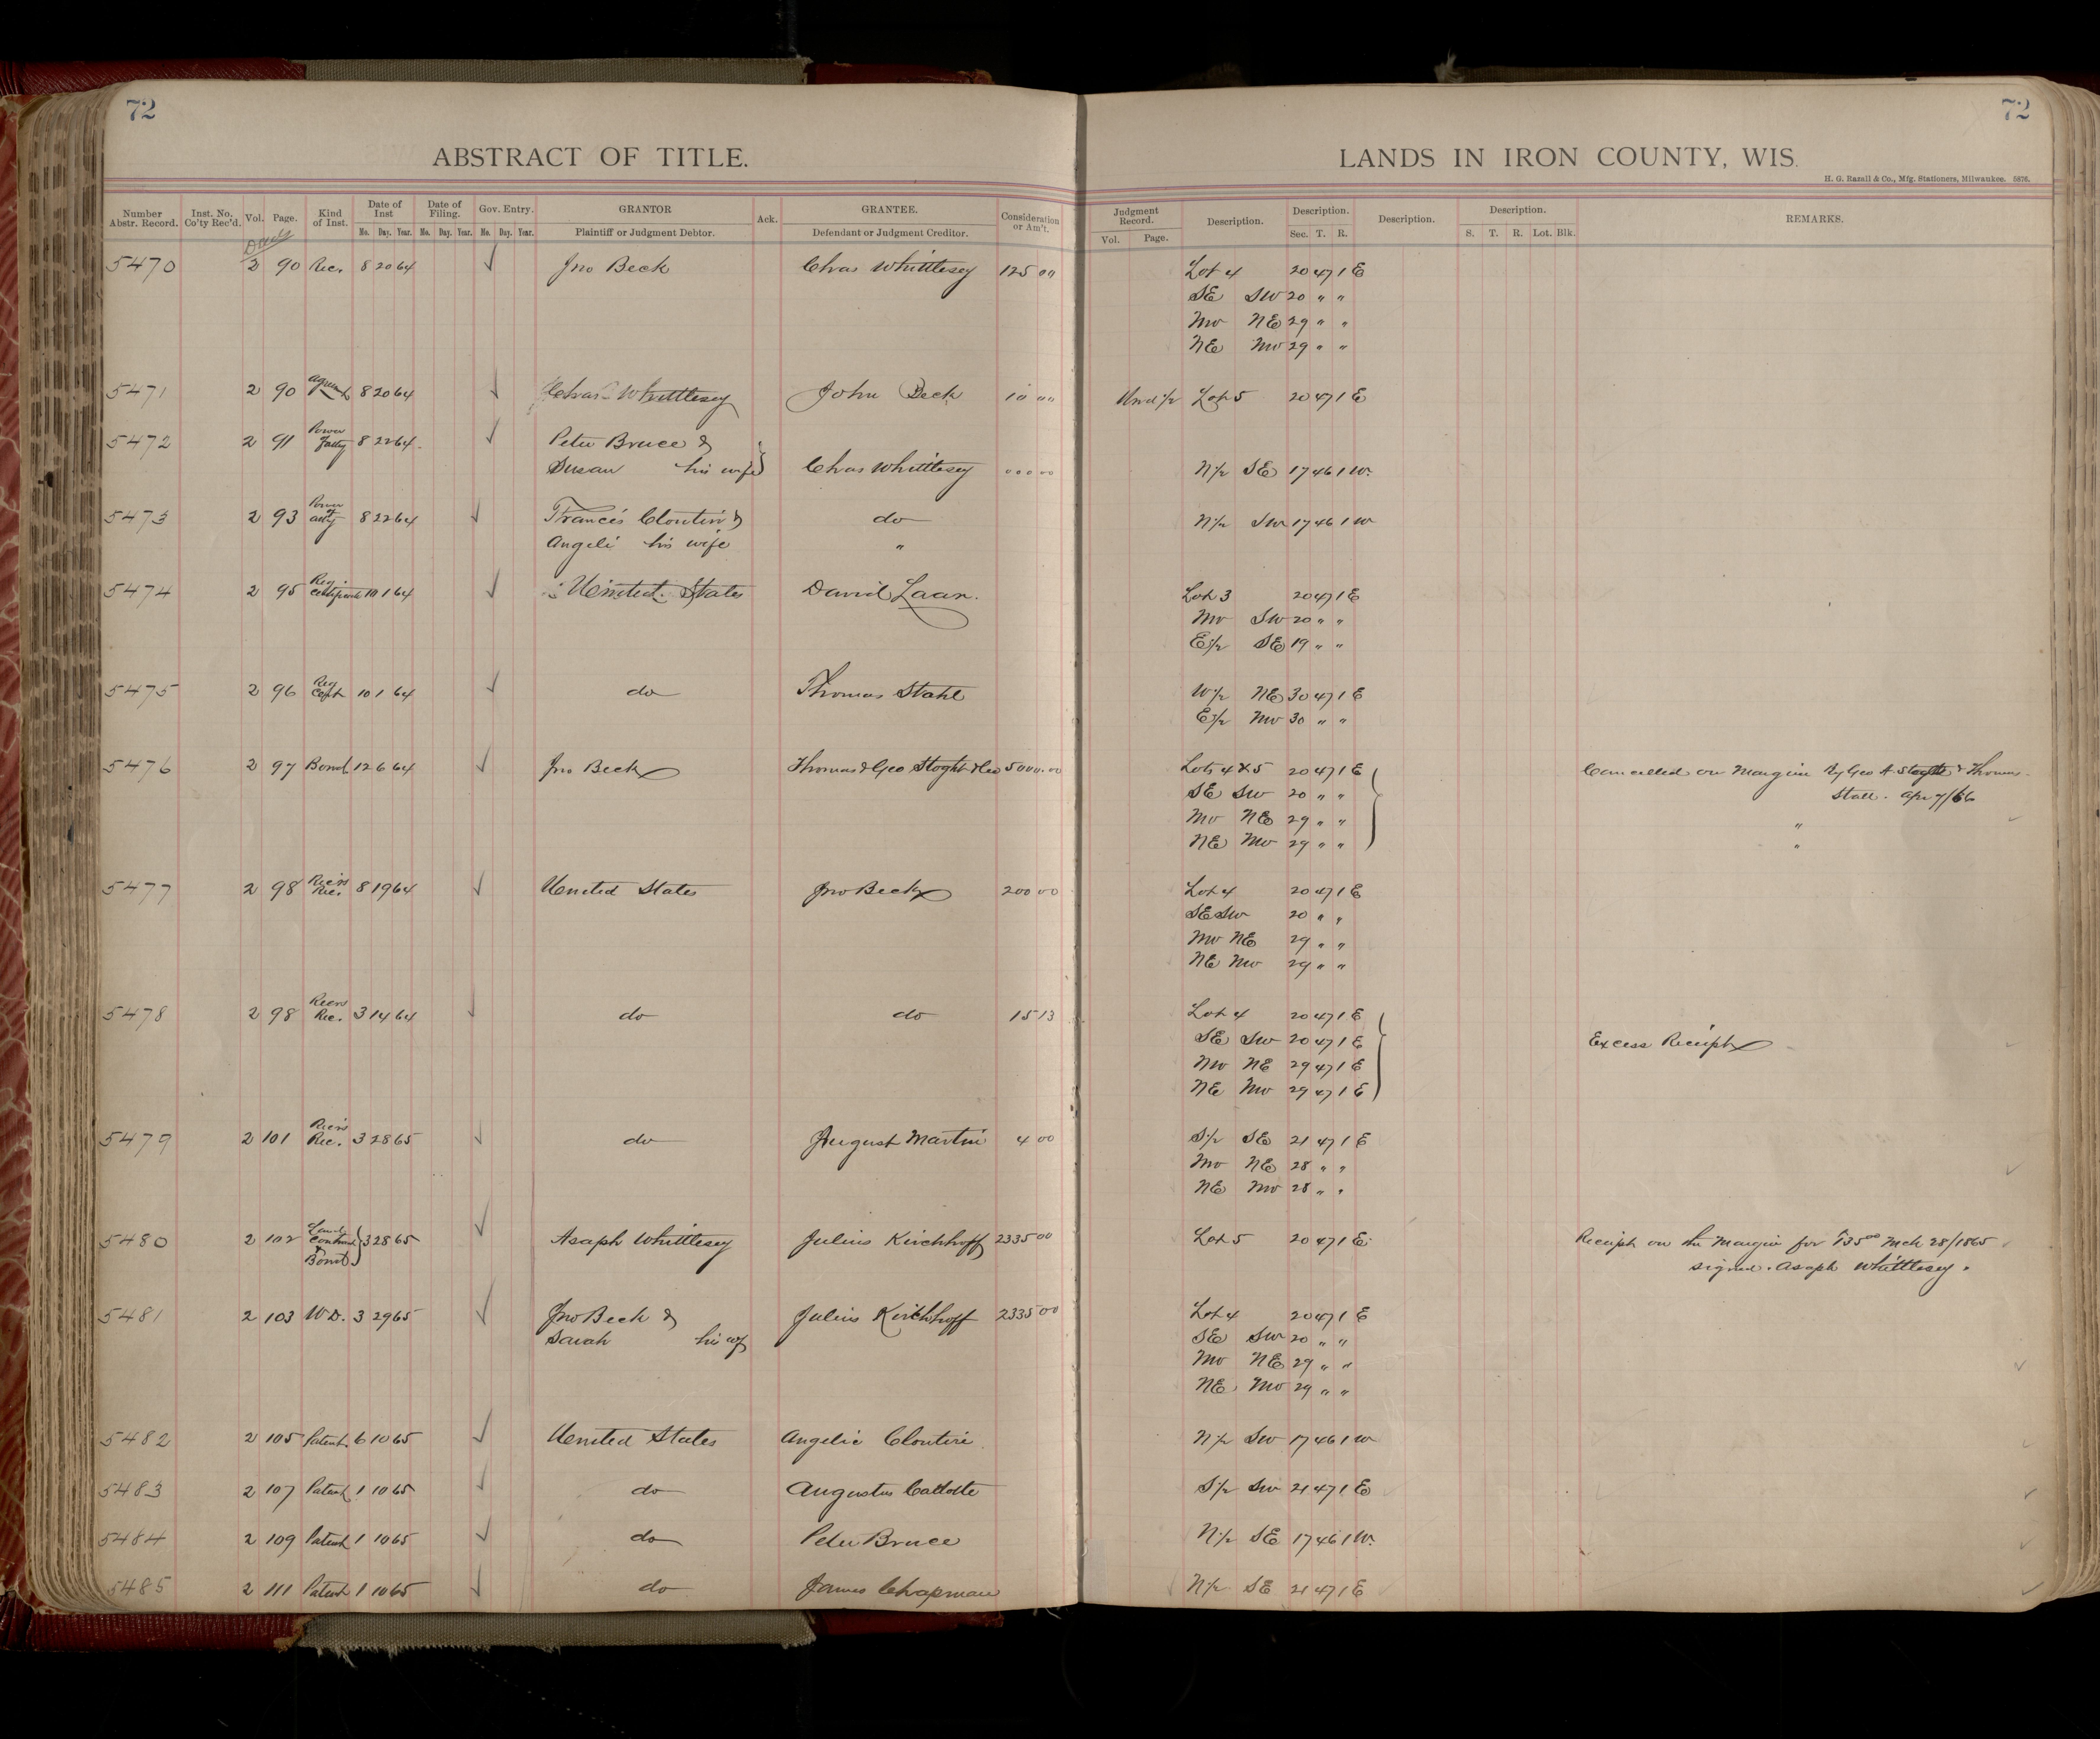 72
72
ABSTRACT OF TITLE.
LANDS IN IRON COUNTY, WIS.
H. G. Razall & Co., Mfg. Stationers, Milwaukee. 5876.
Number Abstr. Record. Inst. No. Co'ty Rec'd. Vol. Page. Kind of Inst. Date of Inst Mo. Day. Year. Date of Filing. Mo. Day. Year. Gov. Entry. Mo. Day. Year. GRANTOR Plaintiff or Judgment Debtor. Ack. GRANTEE. Defendant or Judgment Creditor. Consideration or Am't. Judgment Record. Vol. Page. Description. Description. Sec. T. R. Description. Description. S. T. R. Lot. Blk. REMARKS.
Deeds
5470 2 90 Rec. 8 20 64 ✓ Jno Beck Chas Whittlesey 125 00 Lot 4 20 47 1 E
SE SW 20 " "
NW NE 29 " "
NE NW 29 " "
5471 2 90 Agreement 8 20 64 ✓ Chas Whittlesey John Beck 10 00 Und 1/2 Lot 5 20 47 1 E
5472 2 91 Power Atty 8 22 64 ✓ Peter Bruce &
Susan his wife Chas Whittlesey 000 00 N 1/2 SE 17 46 1 W.
5473 2 93 Power of atty 8 22 64 ✓ Francis Cloutier & do N 1/2 SW 17 46 1 W
Angeli his wife "
5474 2 95 Reg. Certificate 10 1 64 ✓ United States David Laan. Lot 3 20 47 1 E
NW SW 20 " "
E 1/2 SE 19 " "
5475 2 96 Reg Cert 10 1 64 ✓ do Thomas Stahl W 1/2 NE 30 47 1 E
E 1/2 NW 30 " "
5476 2 97 Bond 12 6 64 ✓ Jno Beck Thomas & Geo 5000.00 Lots 4 & 5 20 47 1 E Cancelled on Margin By Geo A. & Thomas
SE SW 20 " " Stall. Apr 7/66
NW NE 29 " " "
NE NW 29 " " "
5477 2 98 Rec'rs Rec. 8 19 64 ✓ United States Jno Beck 200 00 Lot 4 20 47 1 E
SE SW 20 " "
NW NE 29 " "
NE NW 29 " "
5478 2 98 Recrs Rec. 3 14 64 ✓ do do 15 13 Lot 4 20 47 1 E
SE SW 20 47 1 E Excess Receipt
NW NE 29 47 1 E
NE NW 29 47 1 E
5479 2 101 Recrs Rec. 3 28 65 ✓ do August Martin 4 00 S 1/2 SE 21 47 1 E
NW NE 28 " "
NE NW 28 " "
5480 2 102 Land Contract & Bond 3 28 65 ✓ Asaph Whittlesey Julius Kirchhoff 2335 00 Lot 5 20 47 1 E Receipt on the Margin for $35 00 Mch 28/1865
signed. Asaph Whittlesey.
5481 2 103 W.D. 3 29 65 ✓ Jno Beck & Julius Kirchhoff 2335 00 Lot 4 20 47 1 E
Sarah his wf SE SW 20 " "
NW NE 29 " "
NE NW 29 " "
5482 2 105 Patent 6 10 65 ✓ United States Angelic Cloutire N 1/2 SW 17 46 1 W
5483 2 107 Patent 1 10 65 ✓ do Augustus Cadotte S 1/2 SW 21 47 1 E
5484 2 109 Patent 1 10 65 ✓ do Peter Bruce N 1/2 SE 17 46 1 W.
5485 2 111 Patent 1 10 65 ✓ do James Chapman N 1/2 SE 21 47 1 E